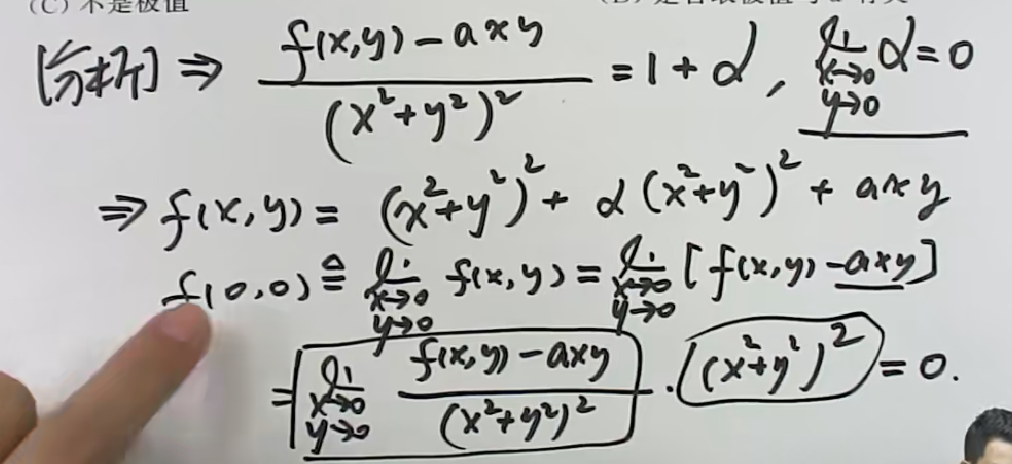 (C) 不是极值
[分析] ⇒ \frac{f(x,y)-axy}{(x²+y²)²} = 1+α, \lim_{x→0, y→0} α=0
⇒ f(x,y) = (x²+y²)² + α(x²+y²)² + axy
f(0,0) ≜ \lim_{x→0, y→0} f(x,y) = \lim_{x→0, y→0} [f(x,y)-axy]
= \lim_{x→0, y→0} \frac{f(x,y)-axy}{(x²+y²)²} · (x²+y²)² = 0.